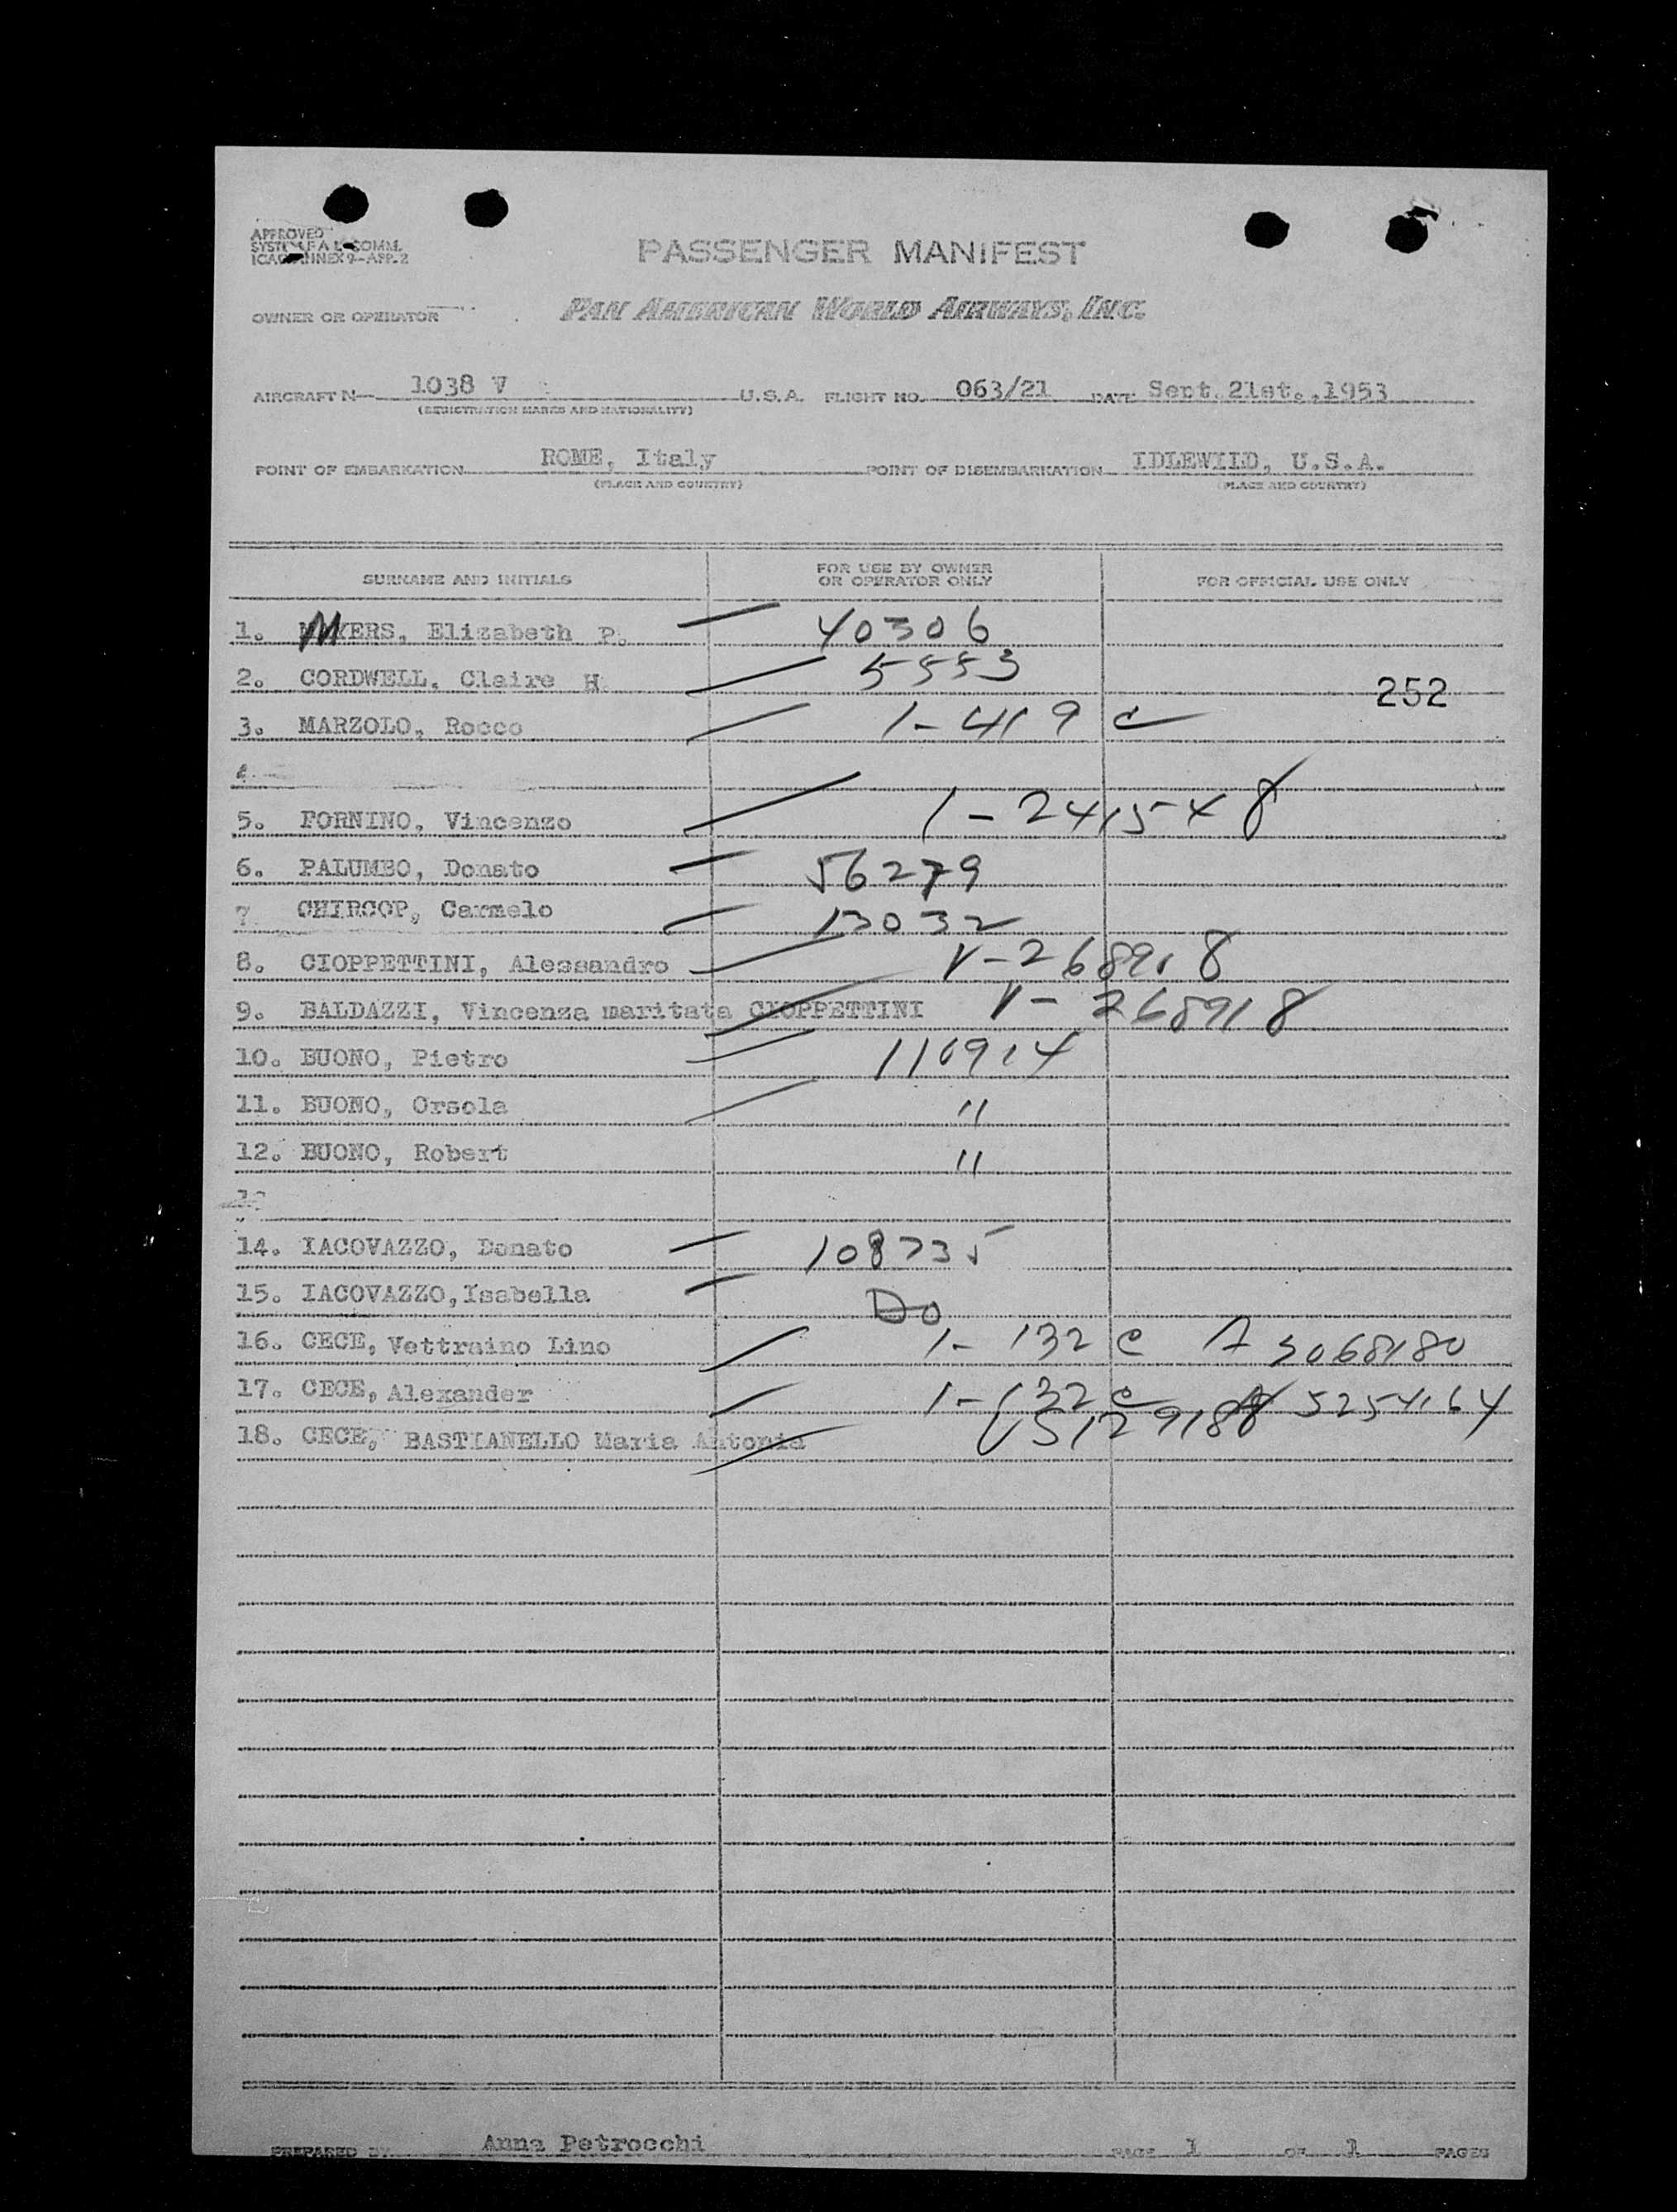 APPROVED
SYSTEM F A L COMM.
ICAO ANNEX 9-APP. 2
PASSENGER MANIFEST
OWNER OR OPERATOR PAN AMERICAN WORLD AIRWAYS, INC.
AIRCRAFT N- 1038 V U.S.A. FLIGHT NO. 063/21 DATE Sept. 21st., 1953
(REGISTRATION MARKS AND NATIONALITY)
POINT OF EMBARKATION ROME, Italy POINT OF DISEMBARKATION IDLEWILD, U.S.A.
(PLACE AND COUNTRY) (PLACE AND COUNTRY)
SURNAME AND INITIALS FOR USE BY OWNER OR OPERATOR ONLY FOR OFFICIAL USE ONLY
1. MYERS, Elizabeth P. 40306
2. CORDWELL, Claire H. 5553
252
3. MARZOLO, Rocco 1-419 c
4.
5. FORNINO, Vincenzo 1-241548
6. PALUMBO, Donato 56279
7 CHIRCOP, Carmelo 13032
8. CIOPPETTINI, Alessandro V-268918
9. BALDAZZI, Vincenza maritata CIOPPETTINI V-268918
10. BUONO, Pietro 110914
11. BUONO, Orsola "
12. BUONO, Robert "
14. IACOVAZZO, Donato 108735
15. IACOVAZZO, Isabella Do
16. CECE, Vettraino Lino 1-132 c A 5068180
17. CECE, Alexander 1-132 c A 5254164
18. CECE, BASTIANELLO Maria Antonia
PREPARED BY Anna Petrocchi PAGE 1 OF 1 PAGES